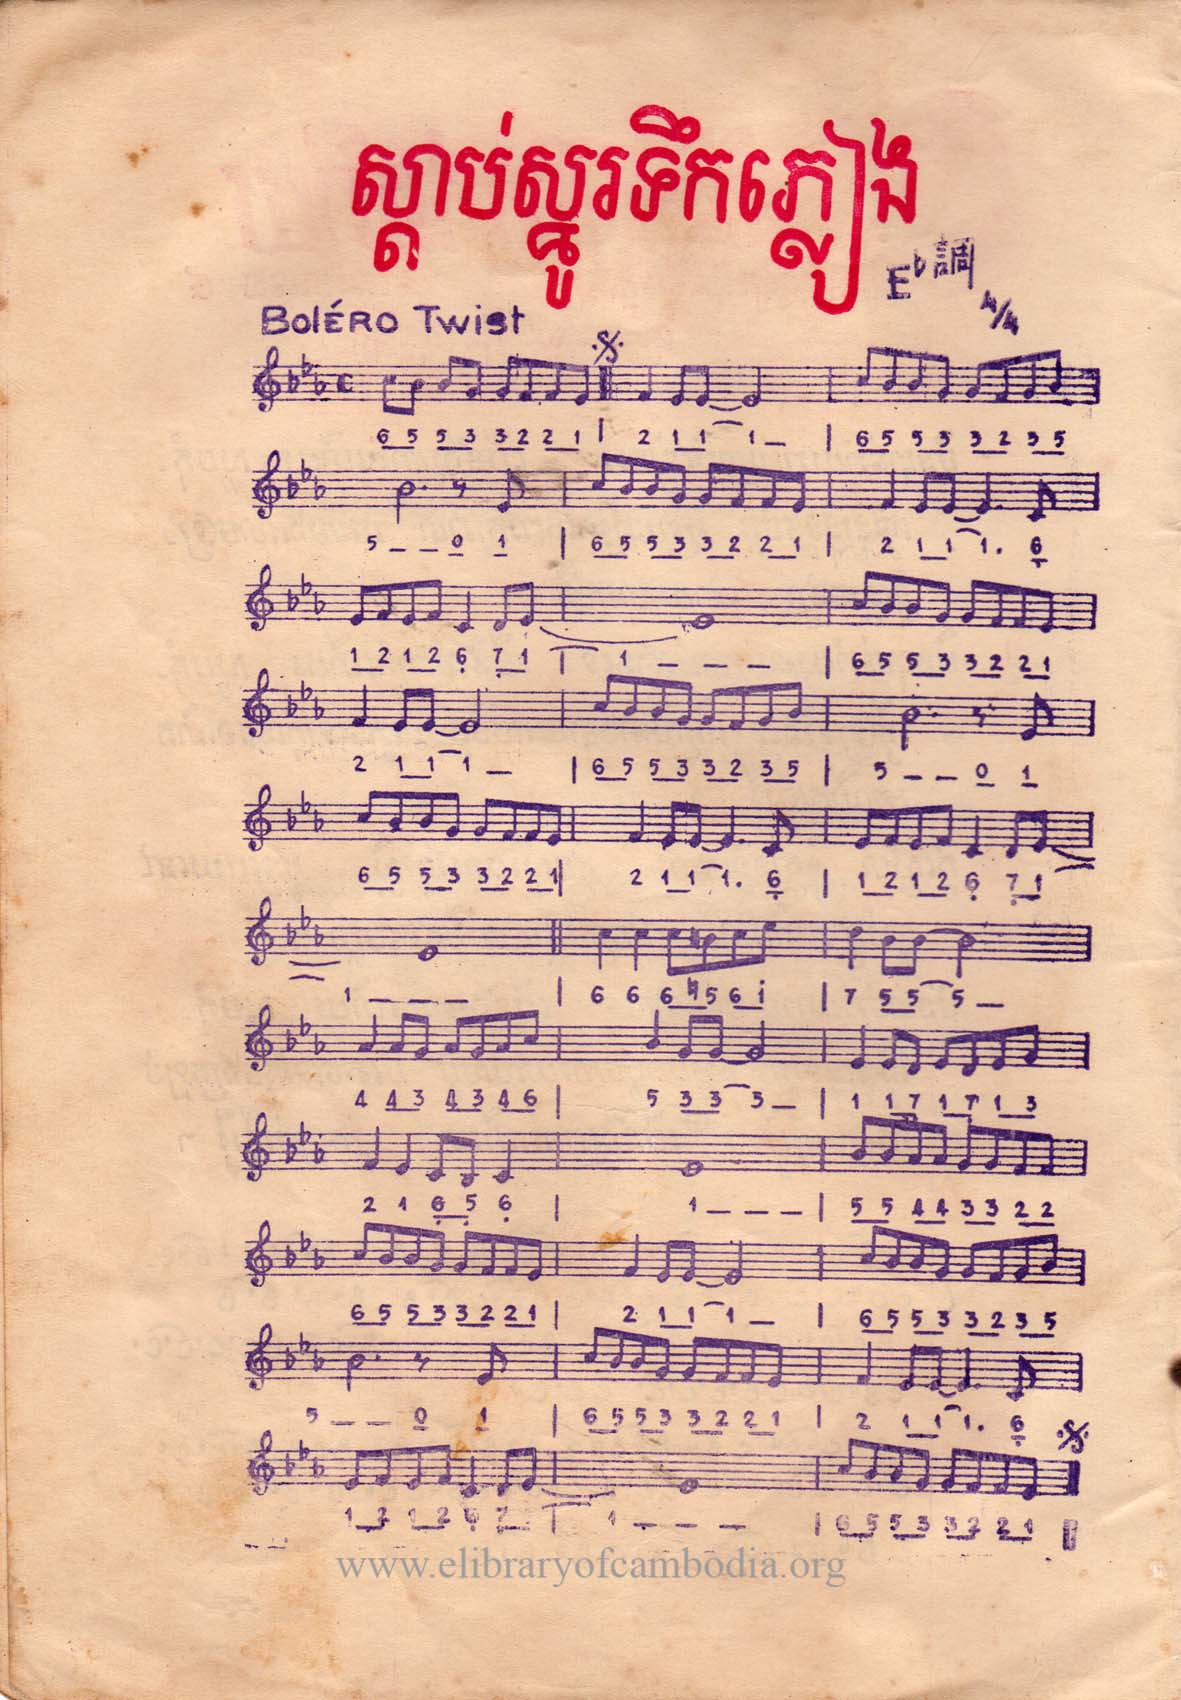 ស្ដាប់ស្នូរទឹកភ្លៀង
E♭調
4/4
BOLÉRO TWIST
6 5 5 3 3 2 2 1 | 2 1 1 1 – | 6 5 5 3 3 2 3 5
5 – – 0 1 | 6 5 5 3 3 2 2 1 | 2 1 1 1. 6
1 2 1 2 6 7 1 | 1 – – – | 6 5 5 3 3 2 2 1
2 1 1 1 – | 6 5 5 3 3 2 3 5 | 5 – – 0 1
6 5 5 3 3 2 2 1 | 2 1 1 1. 6 | 1 2 1 2 6 7 1
1 – – – | 6 6 6 ♮5 6 i | 7 5 5 5 –
4 4 3 4 3 4 6 | 5 3 3 3 – | 1 1 7 1 7 1 3
2 1 6 5 6 | 1 – – – | 5 5 4 4 3 3 2 2
6 5 5 3 3 2 2 1 | 2 1 1 1 – | 6 5 5 3 3 2 3 5
5 – – 0 1 | 6 5 5 3 3 2 2 1 | 2 1 1 1. 6
1 2 1 2 6 7 | 1 – – – | 6 5 5 3 3 2 2 1
www.elibraryofcambodia.org